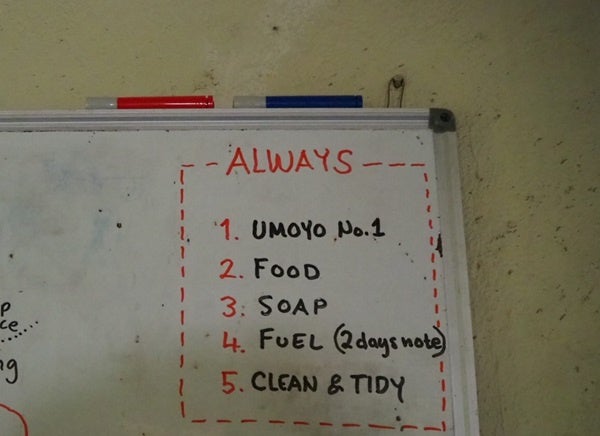 ALWAYS
1. UMOYO No.1
2. FOOD
3. SOAP
4. FUEL (2 days note)
5. CLEAN & TIDY